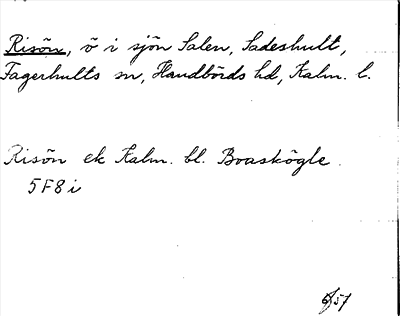 Risön, ö i sjön Salen, Sadeshult,
Fagerhults sn, Handbörds hd, Kalm. l.
Risön ek Kalm. bl. Boaskögle.
5F8i